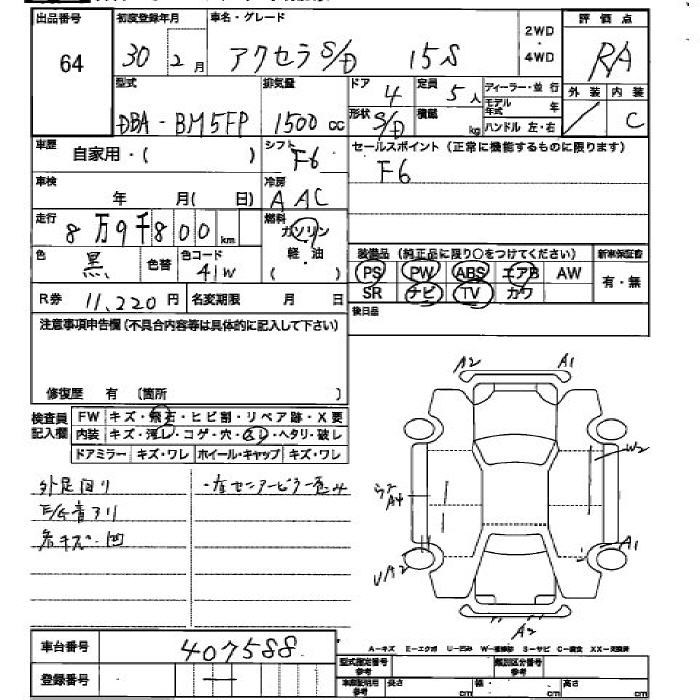 出品番号 初度登録年月 車名・グレード 2WD・4WD 評価点
64 30 2月 アクセラ S/D 15S RA
外装 内装
C
型式 排気量 ドア 定員 ディーラー・並行
DBA-BM5FP 1500cc 4 5人 モデル年式 年
形状 積載 ハンドル 左・右
S/D kg
車歴 自家用・( ) シフト F6 セールスポイント(正常に機能するものに限ります)
F6
車検 年 月( 日) 冷房 AAC
走行 8万9千800km 燃料 ガソリン
軽・油
( )
色 黒 色替 色コード 41W
装備品(純正品に限り○をつけてください) 新車保証書
PS PW ABS エアB AW 有・無
SR ナビ TV カワ
R券 11,220円 名変期限 月 日
後日品
注意事項申告欄(不具合内容等は具体的に記入して下さい)
修復歴 有 [箇所 ]
検査員記入欄
FW キズ・飛石・ヒビ割・リペア跡・X要
内装 キズ・汚レ・コゲ・穴・スレ・ヘタリ・破レ
ドアミラー キズ・ワレ ホイール・キャップ キズ・ワレ
A2 A1
W2
A4
A1
UA2
A2
外足回り
E/G音アリ
各キズ・凹
A-キズ E-エクボ U-凹み W-補修跡 S-サビ C-腐食 XX-交換済
車台番号 407588
登録番号
型式指定番号 参考 類別区分番号 参考
車庫証明用 参考 長さ cm 幅 cm 高さ cm